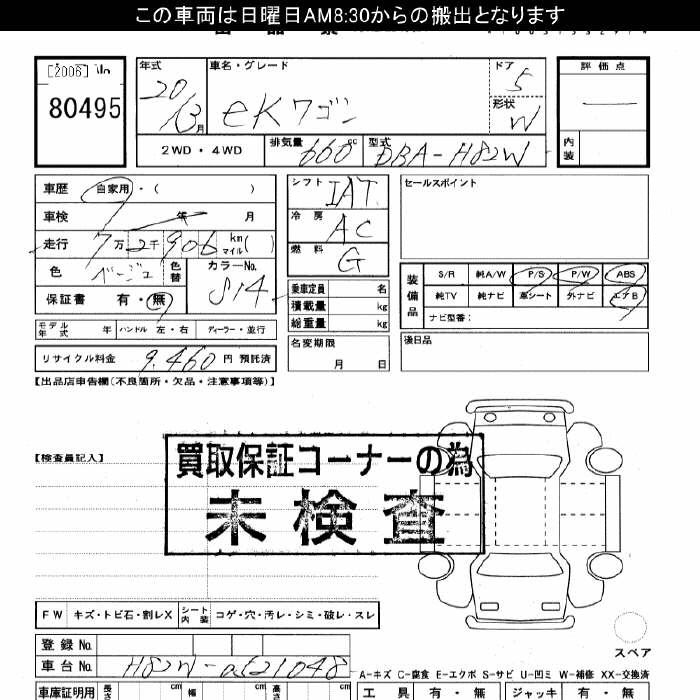 この車両は日曜日AM8:30からの搬出となります
[2006] No
80495
年式 車名・グレード ドア 評価点
20 eKワゴン 5
13月 形状 W
2WD・4WD 排気量 660cc 型式 DBA-H82W 内装
車歴 自家用・( ) シフト IAT セールスポイント
車検 年 月 冷房 AC
走行 7万2千906 km マイル( ) 燃料 G
色 ベージュ 色替 カラーNo. S14 装備品 S/R 純A/W P/S P/W ABS
保証書 有・無 乗車定員 名 純TV 純ナビ 革シート 外ナビ エアB
積載量 kg ナビ型番:
モデル年式 年 ハンドル 左・右 ディーラー・並行 総重量 kg 後日品
リサイクル料金 9,460 円 預託済 名変期限 月 日
【出品店申告欄(不良箇所・欠品・注意事項等)】
【検査員記入】
買取保証コーナーの為
未検査
FW キズ・トビ石・割レX シート内装 コゲ・穴・汚レ・シミ・破レ・スレ
スペア
登録No.
車台No. H82W-
A-キズ C-腐食 E-エクボ S-サビ U-凹ミ W-補修 XX-交換済
車庫証明用 長さ cm 幅 cm 高さ cm 工具 有・無 ジャッキ 有・無